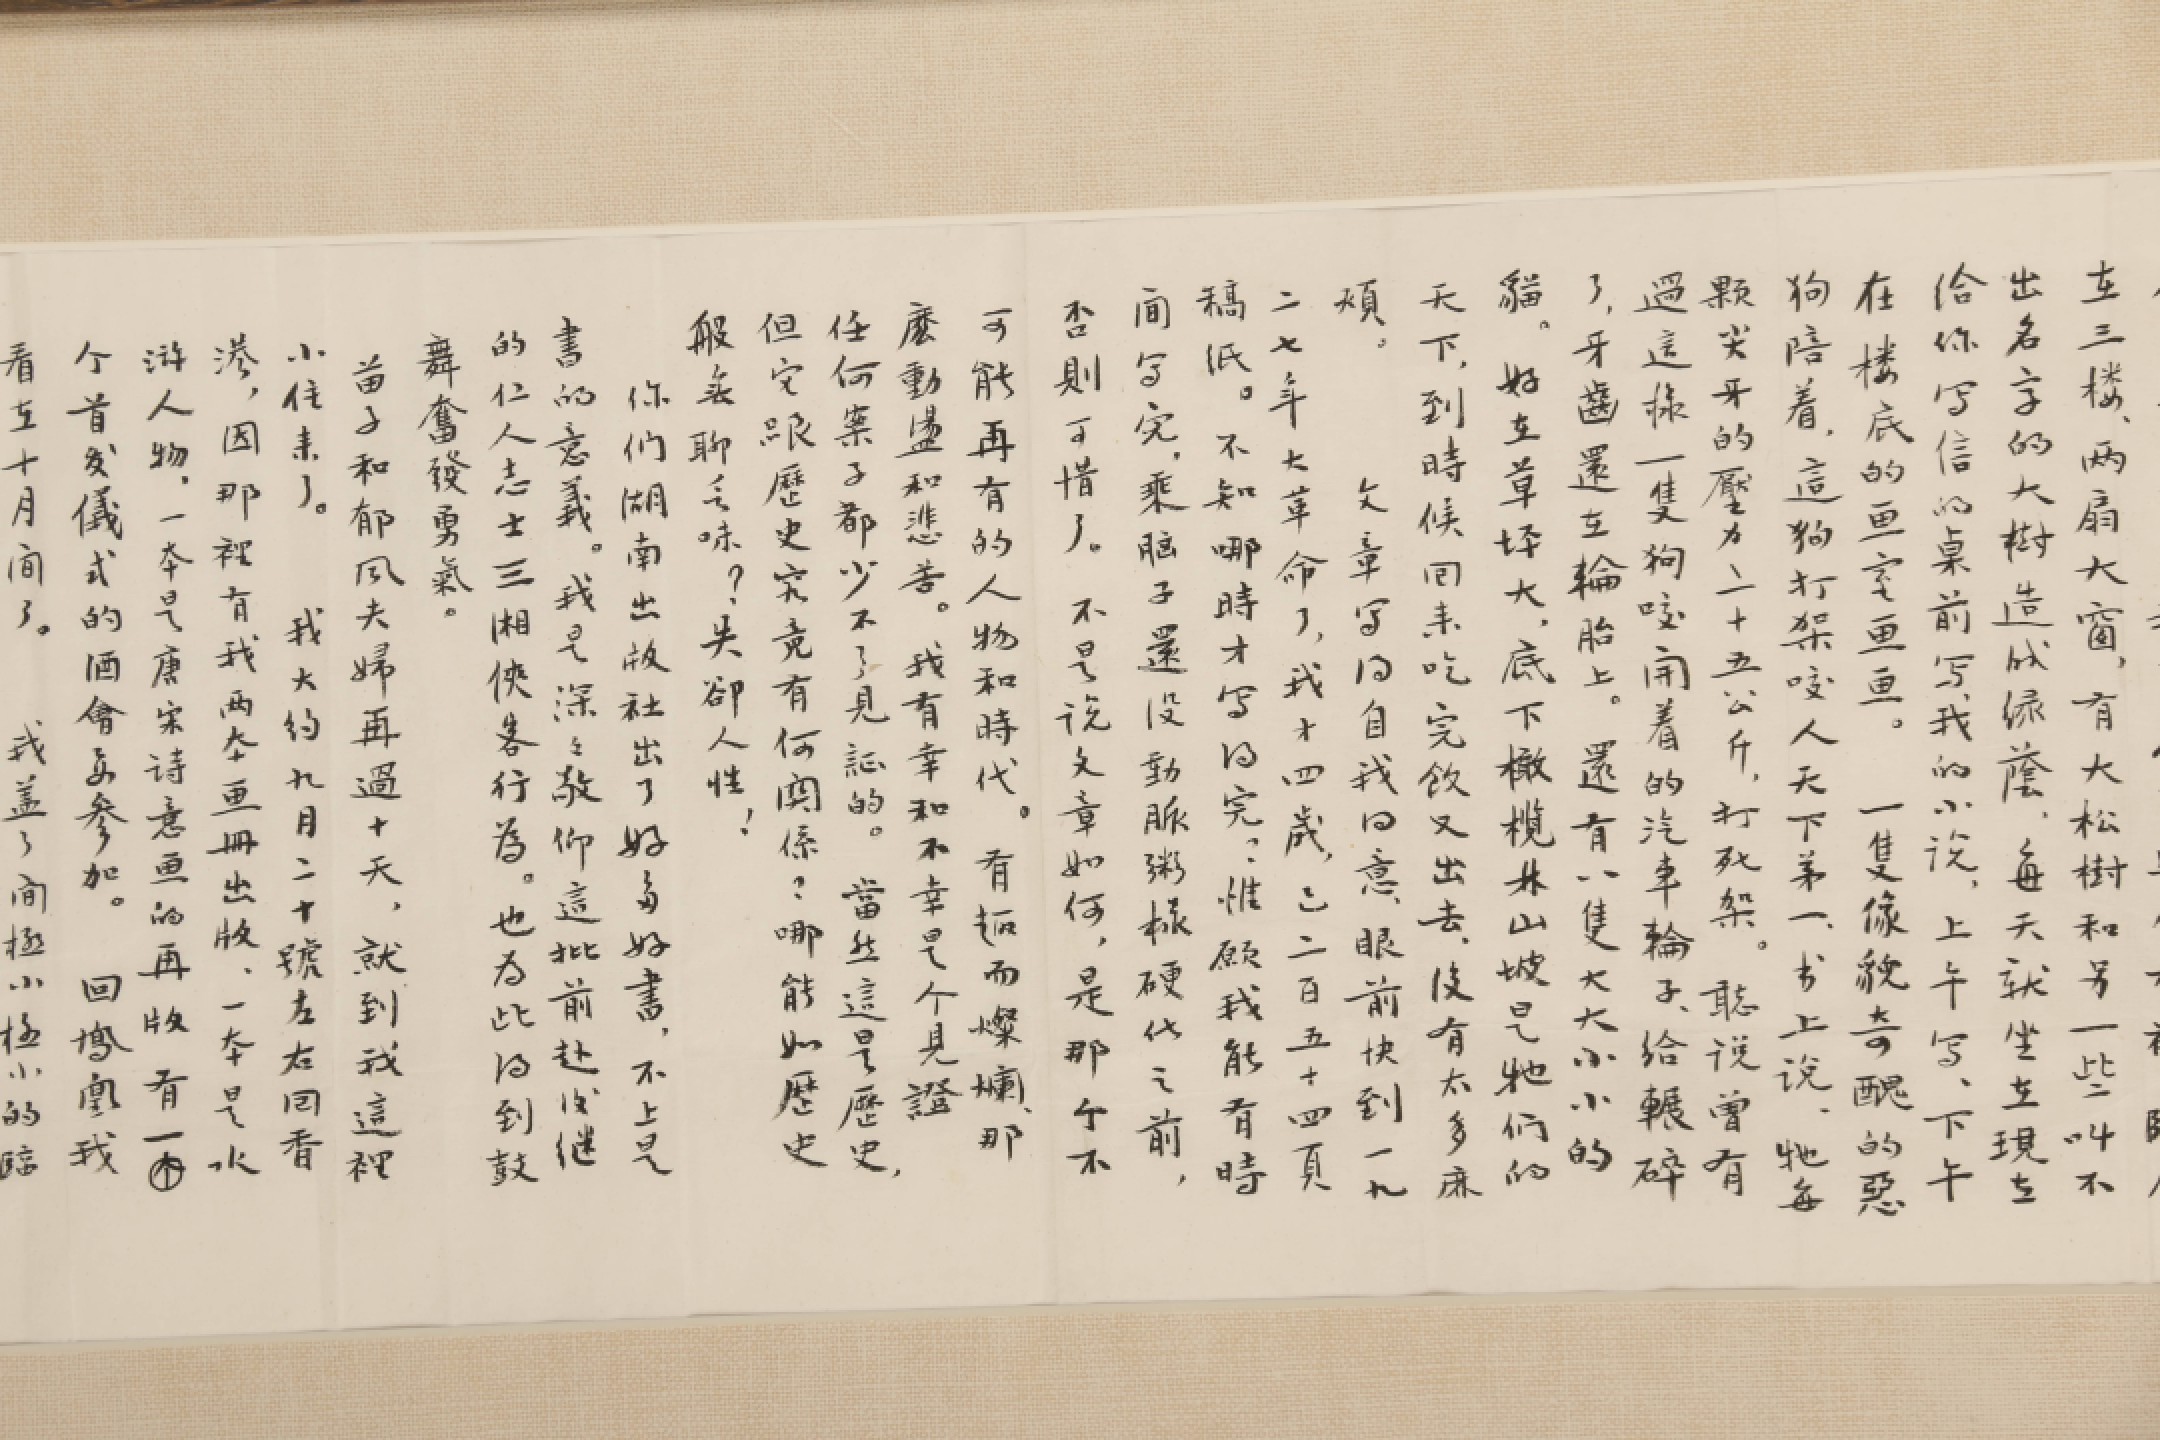 在三楼、两扇大窗，有大松樹和另一些叫不
出名字的大樹造成绿蔭，每天就坐在現在
给你写信的桌前写我的小说，上午写、下午
在楼底的画室画画。一隻像貌奇醜的惡
狗陪着，這狗打架咬人天下第一、书上说、牠每
颗尖牙的壓力二十五公斤，打死架。聽说曾有
過這樣一隻狗咬開着的汽車輪子、给輾碎
了，牙齒還在輪胎上。還有八隻大大小小的
貓。好在草坪大，底下橄榄林山坡是牠们的
天下，到時候回来吃完飲又出去、沒有太多麻
煩。文章写得自我得意、眼前快到一九
二七年大革命了，我才四歲，已二百五十四頁
稿纸。不知哪時才写得完？惟願我能有時
间写完，乘脑子還没動脈粥樣硬化之前，
否則可惜了。不是说文章如何，是那个不
可能再有的人物和時代。有趣而燦爛、那
麼動盪和悲苦。我有幸和不幸是个見證
任何案子都少不了見証的。當然這是歷史，
但它跟歷史究竟有何関係？哪能如歷史
般無聊乏味？失卻人性！
你们湖南出版社出了好多好書，不止是
書的意義。我是深深敬仰這批前赴後继
的仁人志士三湘俠客行為。也为此得到鼓
舞奮發勇氣。
苗子和郁风夫婦再過十天，就到我這裡
小住来了。我大约九月二十號左右回香
港，因那裡有我两本画冊出版、一本是水
滸人物，一本是唐宋诗意画的再版有一本
个首发儀式的酒會要參加。回鳳凰我
看在十月间了。我盖了间極小極小的臨